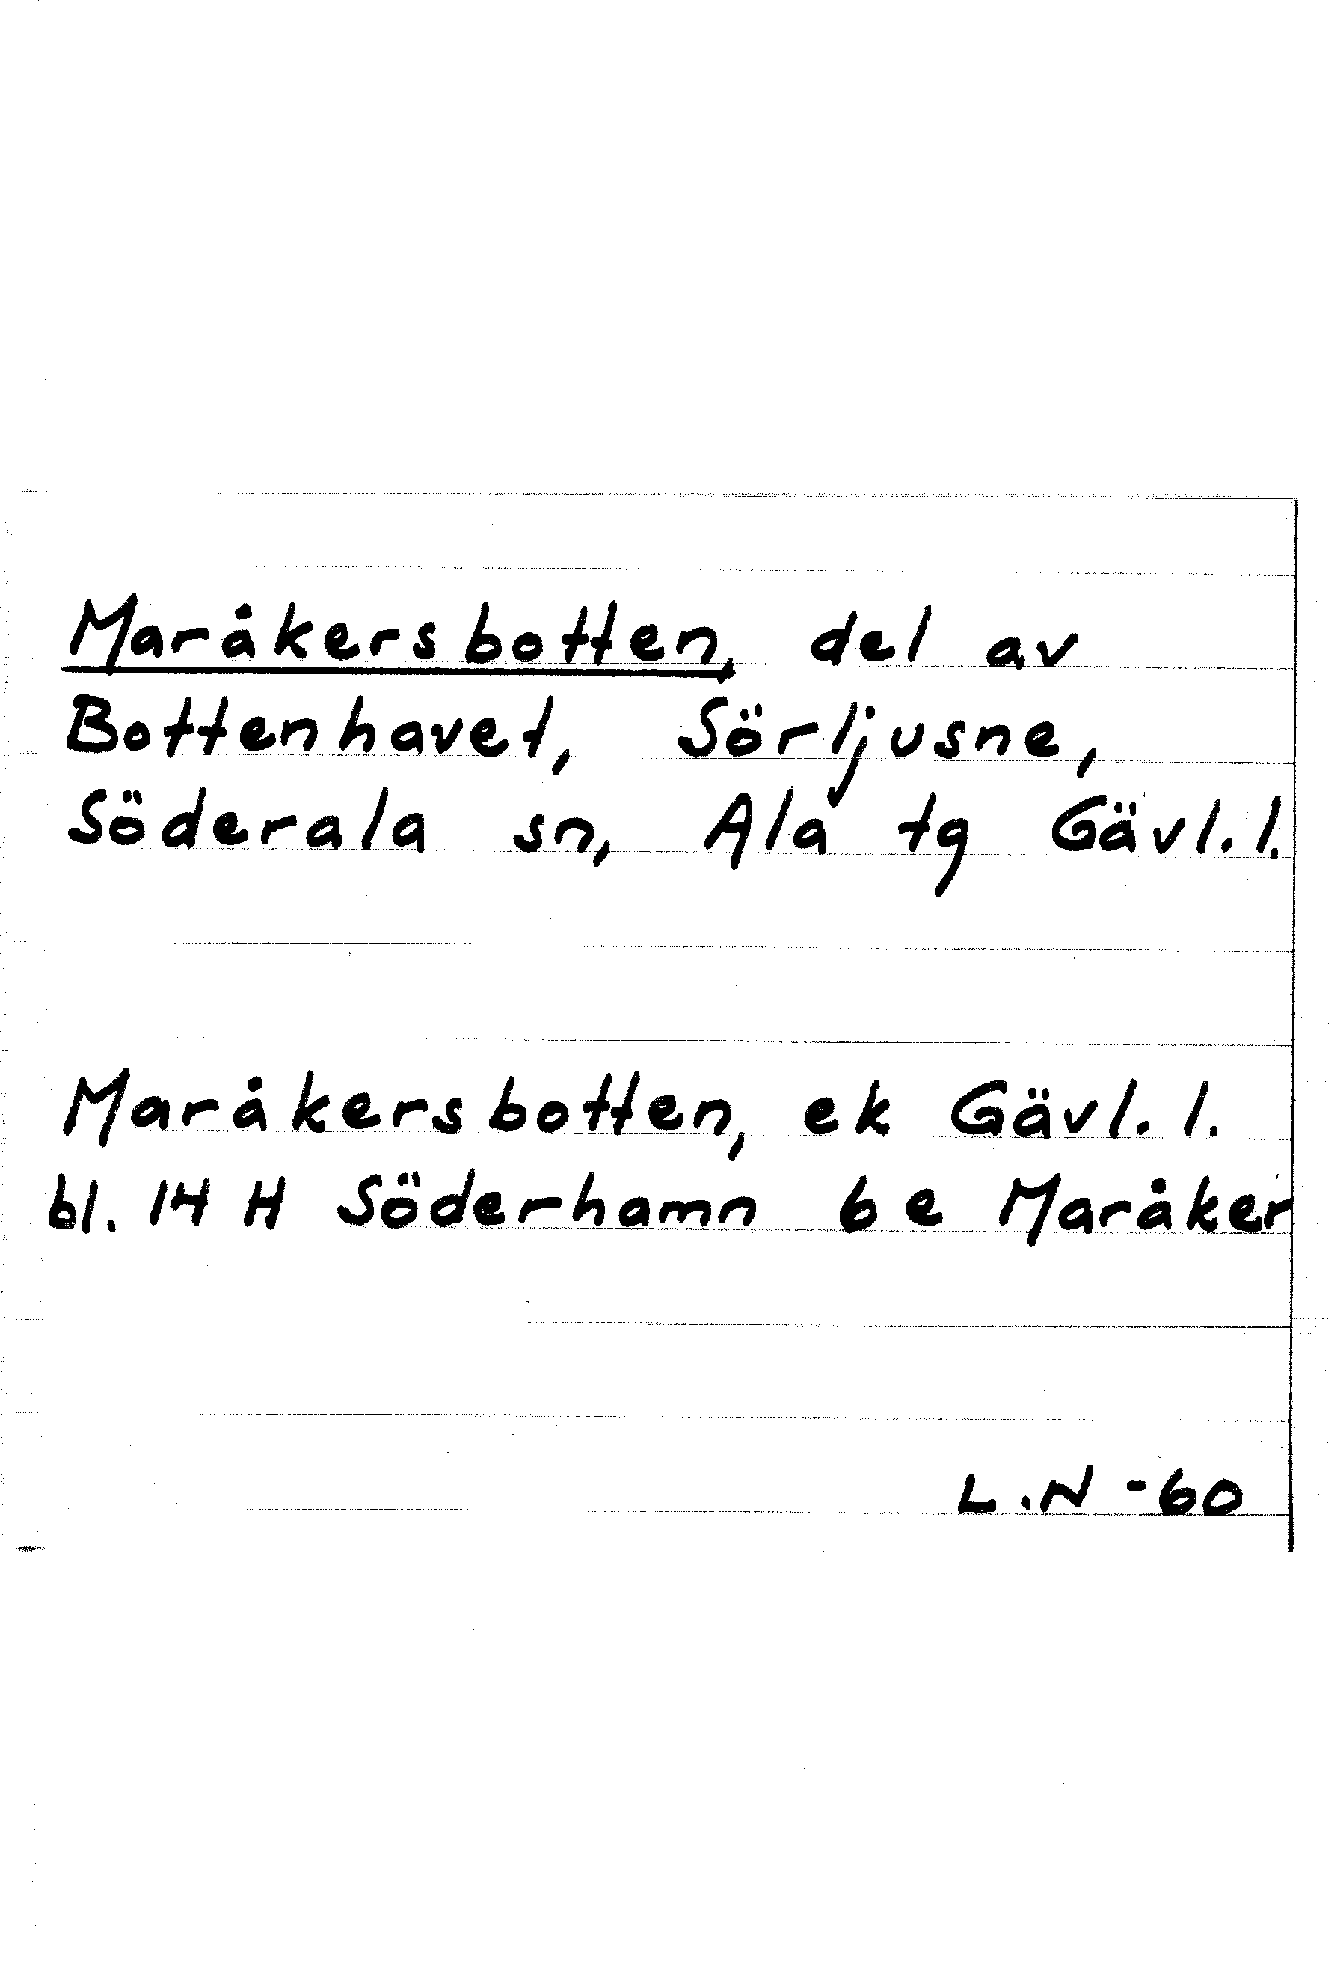 Maråkersbotten, del av
Bottenhavet, Sörljusne,
Söderala sn, Ala tg Gävl. l.
Maråkersbotten, ek Gävl. l.
bl. 14 H Söderhamn 6 e Maråker
L.N -60